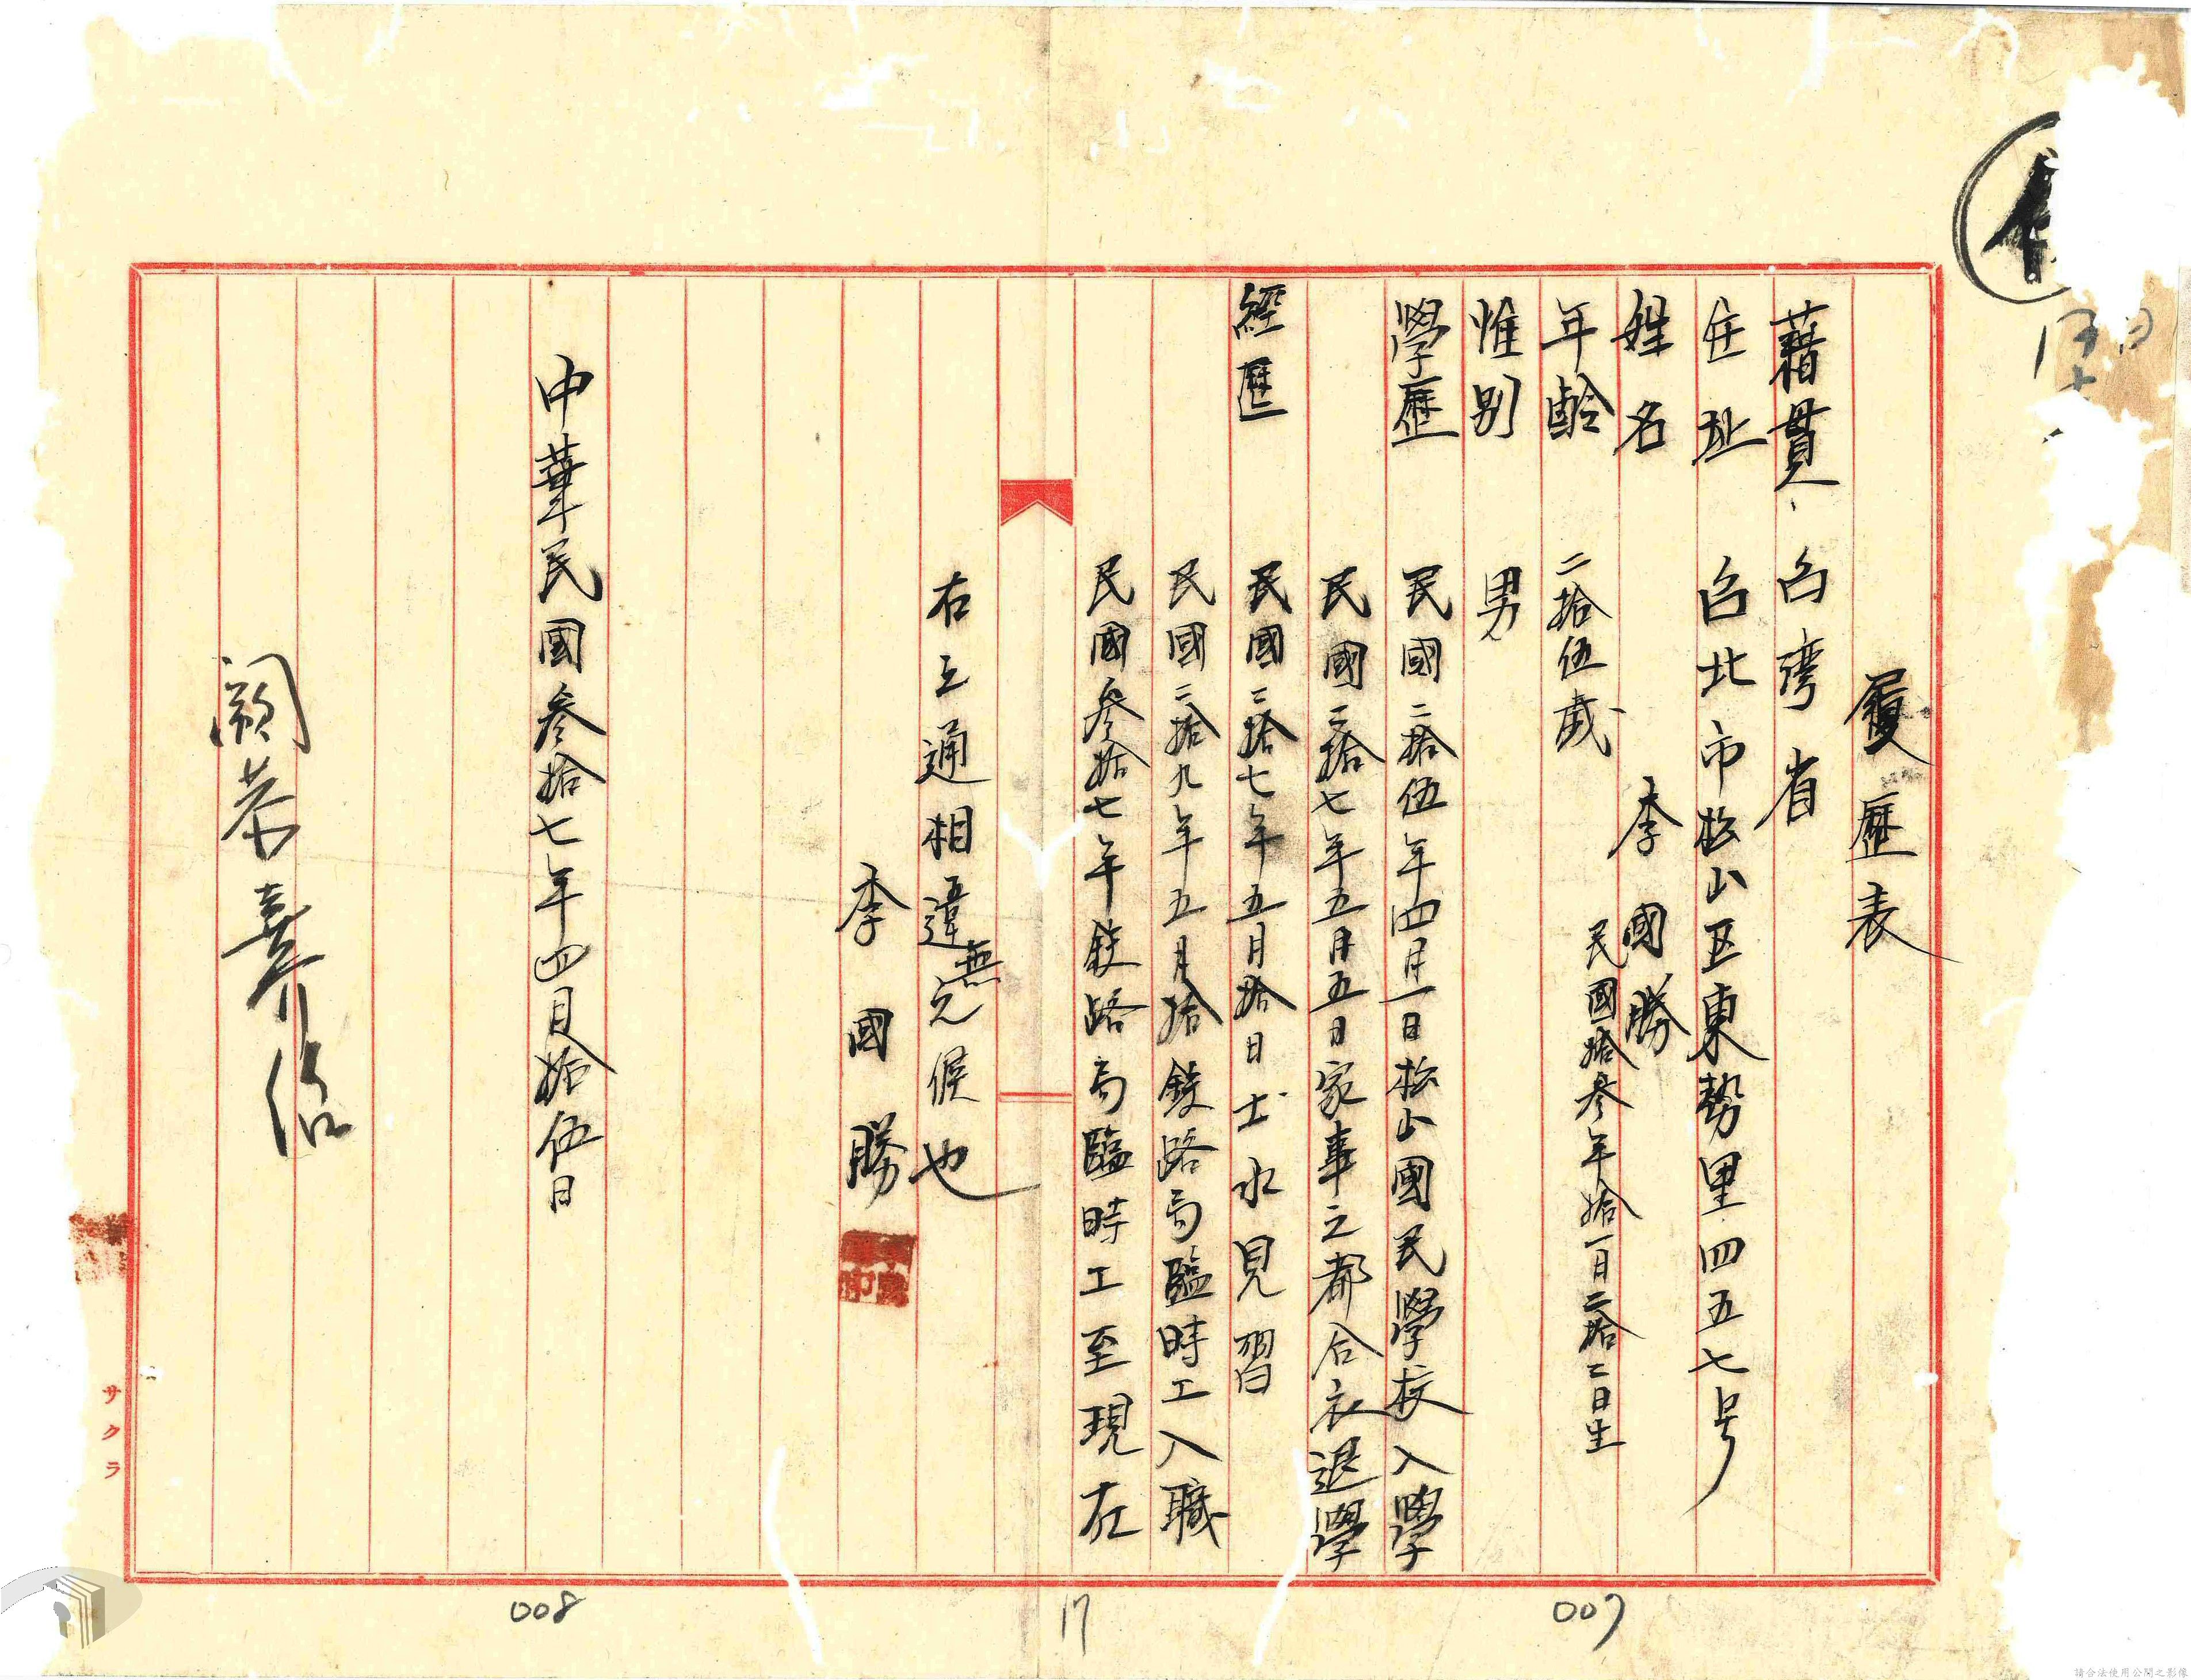 履歷表
藉貫、台灣省
住址 台北市松山区東勢里四五七号
姓名 李國勝
年齡 二拾伍歲 民國拾参年拾一月二拾二日生
惟别 男
學歷 民國二拾伍年四月一日松山國民學校入學
民國二拾七年五月五日家事之都合衣退學
經歷 民國二拾七年五月拾日士水見習
民國二拾九年五月拾鉄路局臨時工入職
民國参拾七年鉄路局臨時工至現在
右之通相違無之候也
李國勝
中華民國参拾七年四月拾伍日
サクラ
007
17
008
請合法使用公開之影像